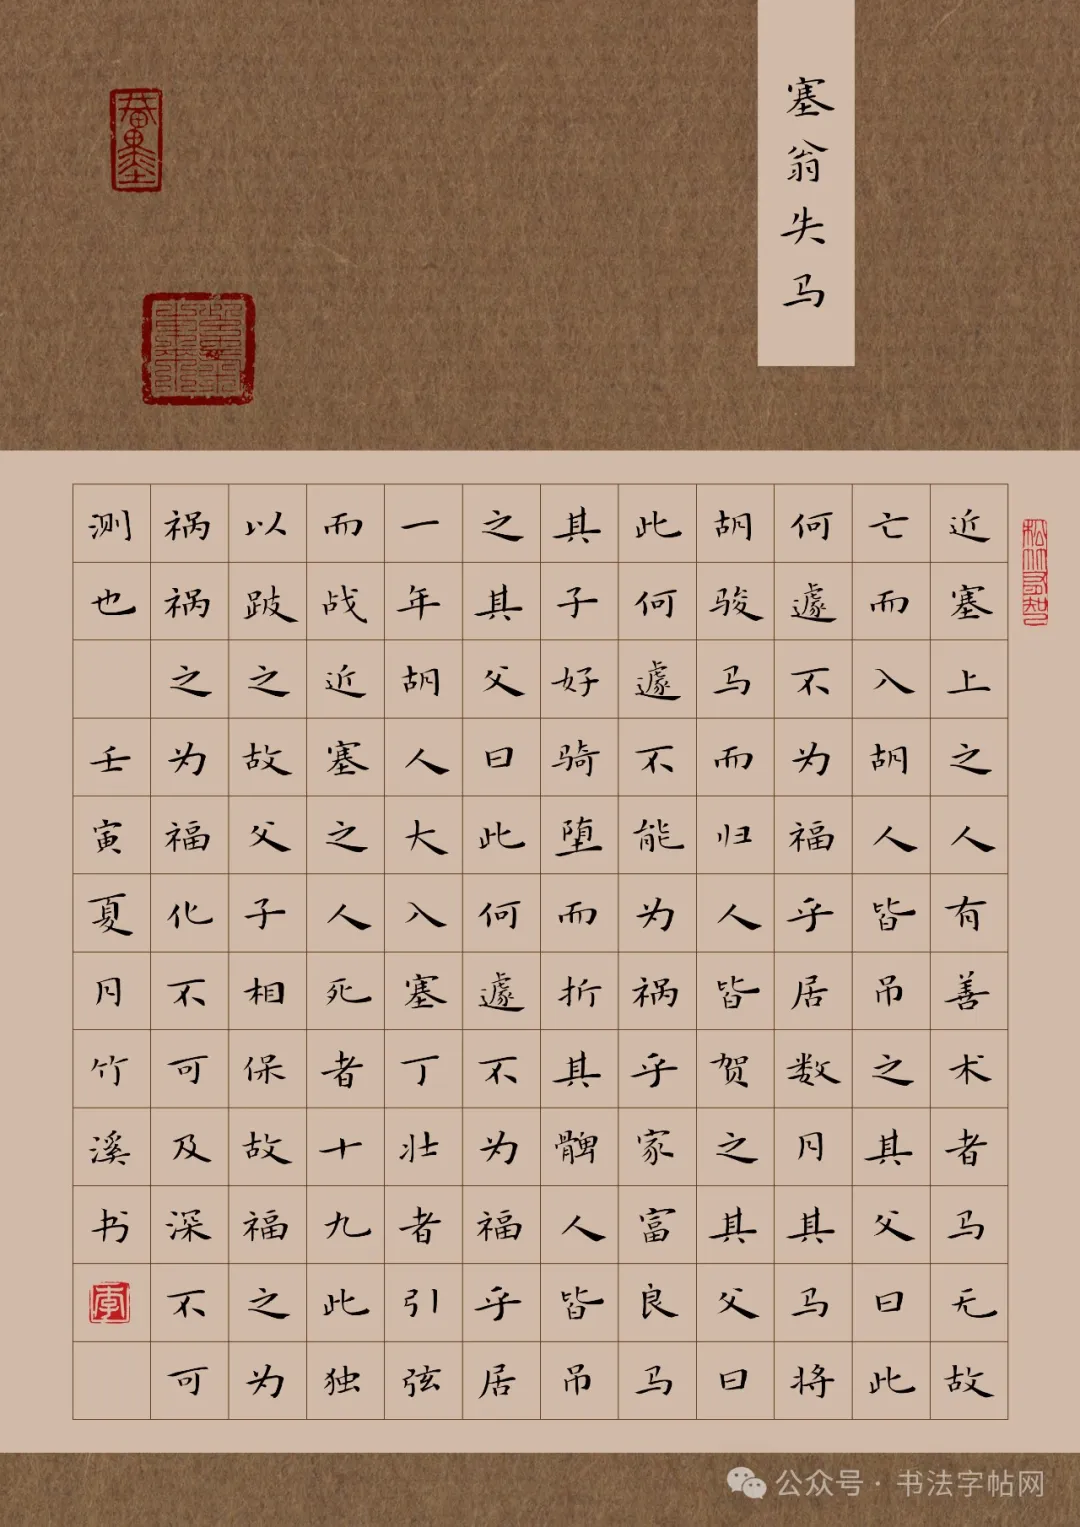 塞翁失马
近塞上之人有善术者马无故
亡而入胡人皆吊之其父曰此
何遽不为福乎居数月其马将
胡骏马而归人皆贺之其父曰
此何遽不能为祸乎家富良马
其子好骑堕而折其髀人皆吊
之其父曰此何遽不为福乎居
一年胡人大入塞丁壮者引弦
而战近塞之人死者十九此独
以跛之故父子相保故福之为
祸祸之为福化不可及深不可
测也
壬寅夏月竹溪书
李
公众号·书法字帖网